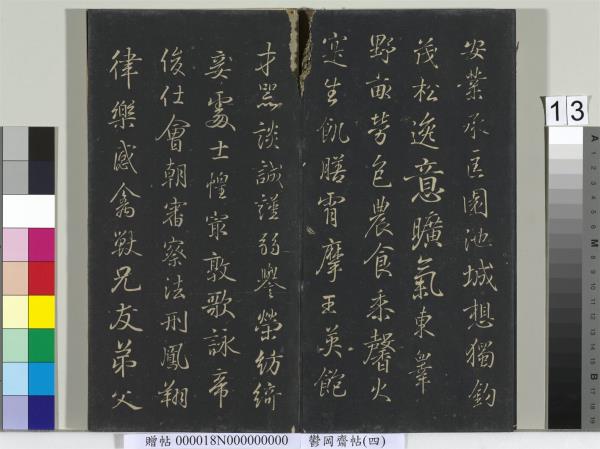 安業承匡園池城想獨鈞
茂松逸意曠氣東皋
野畝勞包農食黍馨火
寔生飢膳霄摩王英飽
才器談誠謹弱譽榮紡綺
奕處士惶寂敦歌詠帝
俊仕會朝審察法刑鳳翔
律樂感禽獸兄友弟父
13
贈帖 000018N000000000 鬱岡齋帖(四)